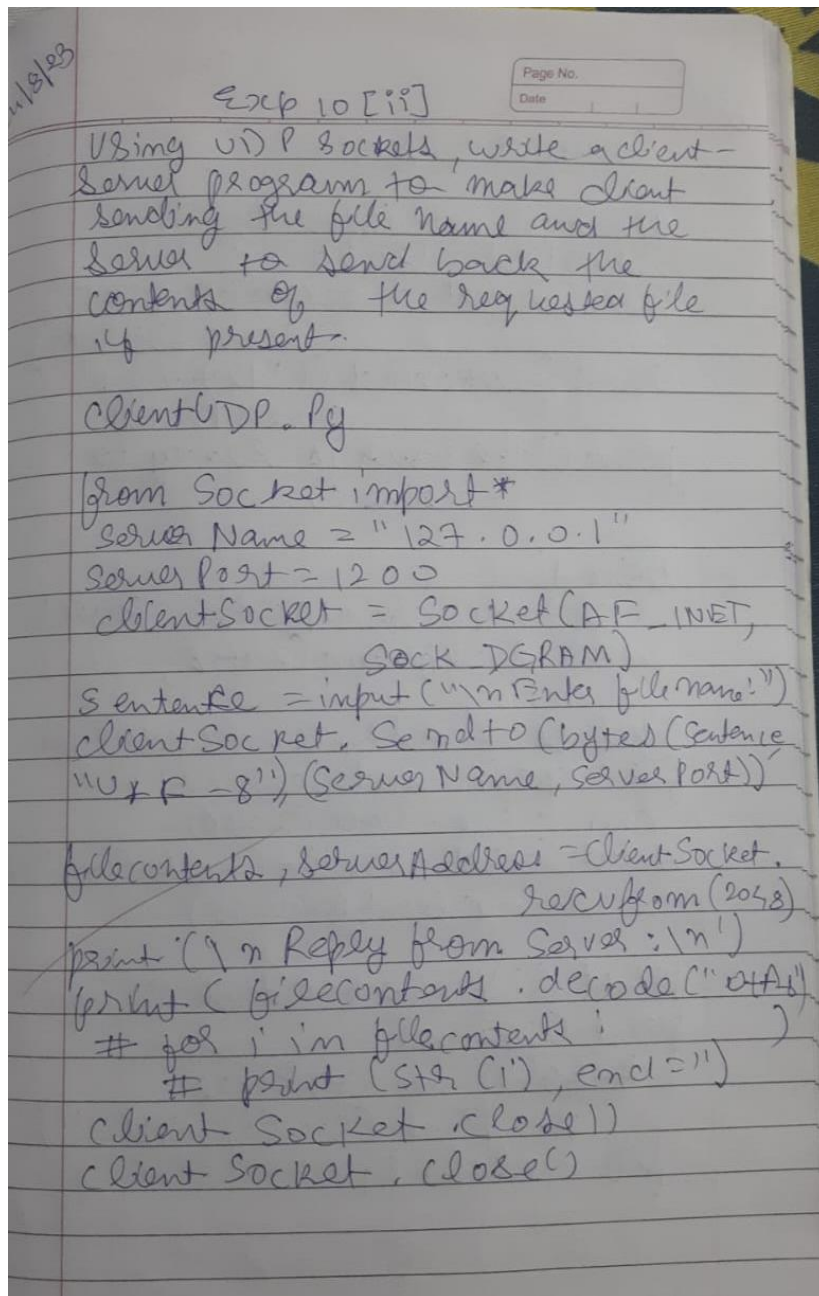 11/8/23
Page No.
Date
Exp 10 [ii]
Using UDP Sockets, write a client-
Server program to make client
sending the file name and the
Server to send back the
contents of the requested file
if present.
ClientUDP.Py
from Socket import *
Server Name = "127.0.0.1"
Server Port = 1200
clientSocket = Socket(AF_INET,
SOCK_DGRAM)
Sentence = input("\n Enter file name:")
clientSocket. Sendto (bytes (Sentence
"utf-8"), (Server Name, Server Port))
filecontents, serverAddress = Client Socket.
recvfrom (2048)
print ('\n Reply from Server :\n')
print ( filecontents . decode ("utf-8")
)
# for i in filecontents :
# print (str (i), end='')
Client Socket . close())
Client Socket . close()